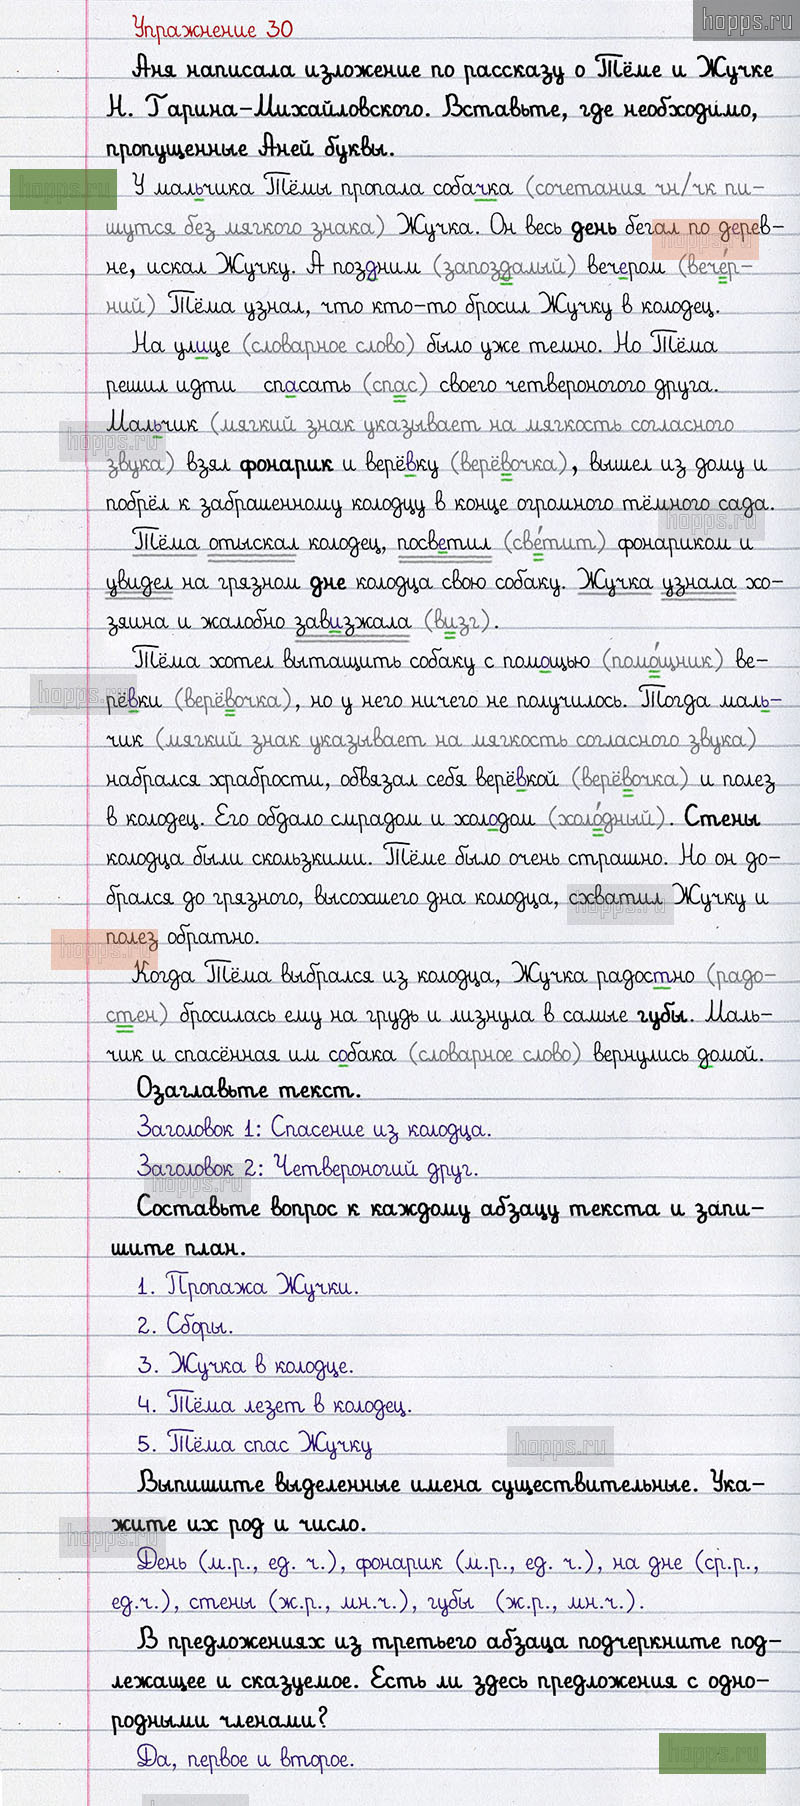 hopps.ru
Упражнение 30
Аня написала изложение по рассказу о Тёме и Жучке
Н. Гарина-Михайловского. Вставьте, где необходимо,
пропущенные Аней буквы.
hopps.ru
У мальчика Тёмы пропала собачка (сочетания чн/чк пи-
шутся без мягкого знака) Жучка. Он весь день бегал по дерев-
hopps.ru
не, искал Жучку. А поздним (запоздалый) вечером (вечер-
ний) Тёма узнал, что кто-то бросил Жучку в колодец.
На улице (словарное слово) было уже темно. Но Тёма
решил идти спасать (спас) своего четвероногого друга.
Мальчик (мягкий знак указывает на мягкость согласного
hopps.ru
звука) взял фонарик и верёвку (верёвочка), вышел из дому и
побрёл к заброшенному колодцу в конце огромного тёмного сада.
hopps.ru
Тёма отыскал колодец, посветил (све́тит) фонариком и
увидел на грязном дне колодца свою собаку. Жучка узнала хо-
зяина и жалобно завизжала (визг).
Тёма хотел вытащить собаку с помощью (помо́щник) ве-
hopps.ru
рёвки (верёвочка), но у него ничего не получилось. Тогда маль-
чик (мягкий знак указывает на мягкость согласного звука)
набрался храбрости, обвязал себя верёвкой (верёвочка) и полез
в колодец. Его обдало смрадом и холодом (холо́дный). Стены
колодца были скользкими. Тёме было очень страшно. Но он до-
брался до грязного, высохшего дна колодца, схватил Жучку и
hopps.ru
полез обратно.
hopps.ru
Когда Тёма выбрался из колодца, Жучка радостно (радо-
стен) бросилась ему на грудь и лизнула в самые губы. Маль-
чик и спасённая им собака (словарное слово) вернулись домой.
Озаглавьте текст.
Заголовок 1: Спасение из колодца.
Заголовок 2: Четвероногий друг.
hopps.ru
Составьте вопрос к каждому абзацу текста и запи-
шите план.
1. Пропажа Жучки.
2. Сборы.
3. Жучка в колодце.
4. Тёма лезет в колодец.
5. Тёма спас Жучку
hopps.ru
Выпишите выделенные имена существительные. Ука-
жите их род и число.
hopps.ru
День (м.р., ед. ч.), фонарик (м.р., ед. ч.), на дне (ср.р.,
ед.ч.), стены (ж.р., мн.ч.), губы (ж.р., мн.ч.).
В предложениях из третьего абзаца подчеркните под-
лежащее и сказуемое. Есть ли здесь предложения с одно-
родными членами?
Да, первое и второе.
hopps.ru